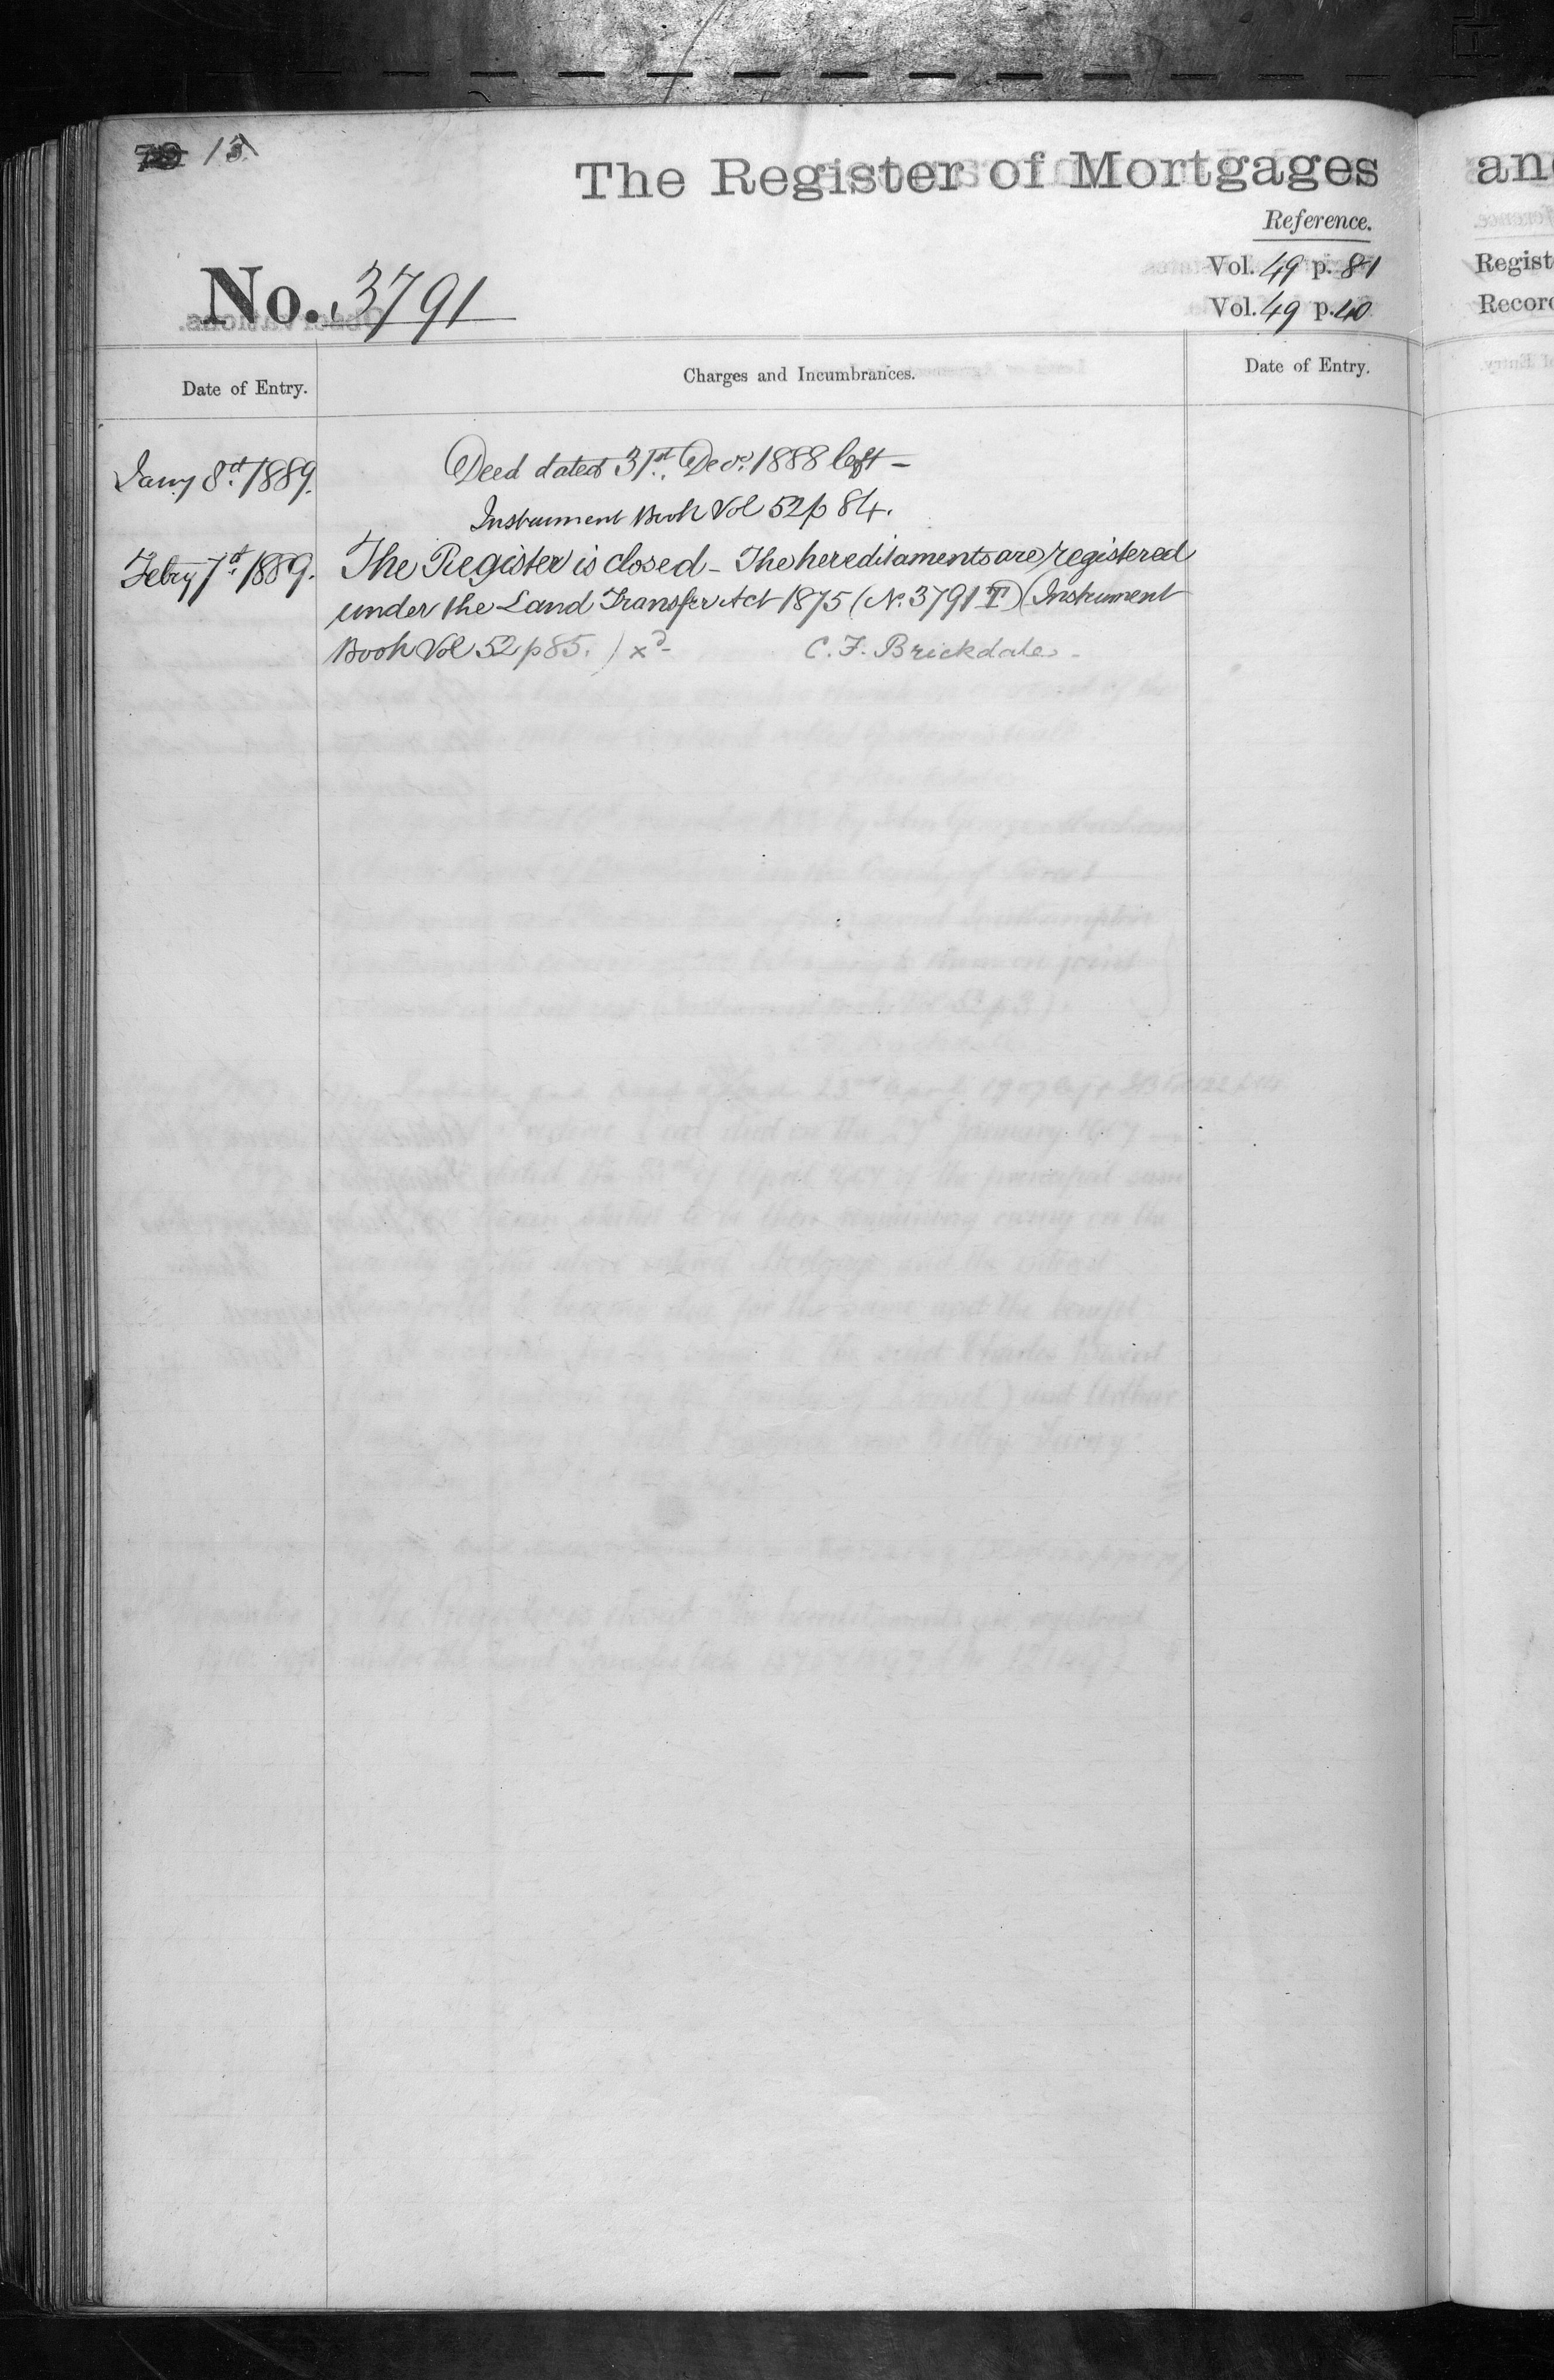 The Register of Mortgages
Reference.
Vol. 49 p. 81
Vol. 49 p. 40
No. 3791
Date of Entry.
Charges and Incumbrances.
Date of Entry.
Jany 8th 1889.
Deed dated 31st. Decr. 1888 left –
Instrument Book Vol 52 p 84.
Febry 7th 1889.
The Register is closed – The hereditaments are registered
under the Land Transfer Act 1875 (No. 3791 T) (Instrument
Book Vol 52 p 85.) xd –
C. F. Brickdale –
an
Regist
Record